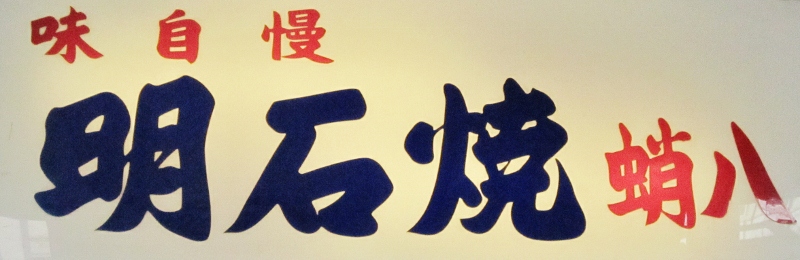 味自慢
明石焼 蛸八